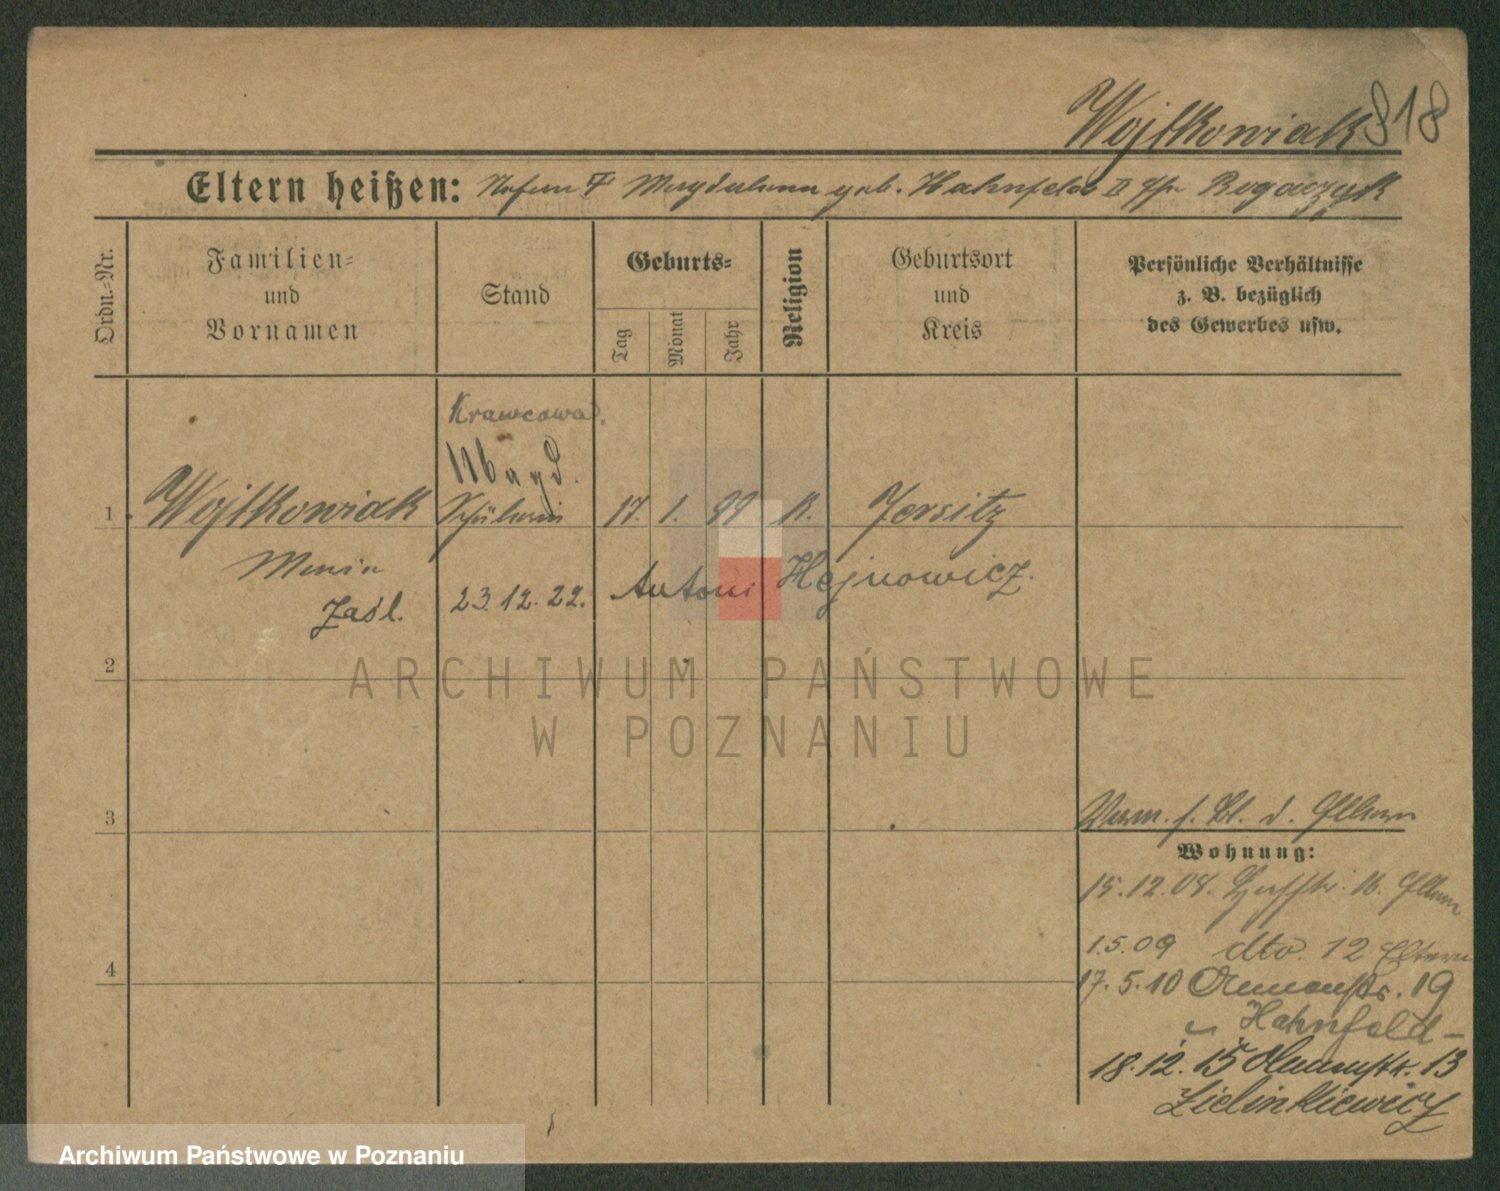 Wojtkowiak 818
Eltern heißen: Magdalena geb. Hahnfeld II Rogaczyk
Ordn.-Nr.
Familien-
und
Vornamen
Stand
Geburts-
Tag
Monat
Jahr
Religion
Geburtsort
und
Kreis
Persönliche Verhältnisse
z. B. bezüglich
des Gewerbes usw.
Krawcowa
Magd.
1 Wojtkowiak Schülerin 17. 1. 99 K. Jersitz
Maria
Zaśl. 23.12.22. Antoni Hejnowicz.
2
3
4
f. Bl. d. Eltern
Wohnung:
15.12.08. 16. Eltern
1.5.09 dto. 12 Eltern
17.5.10 19
Hahnfeld-
18.12.15 13
Zielinkiewicz
ARCHIWUM PAŃSTWOWE
W POZNANIU
Archiwum Państwowe w Poznaniu